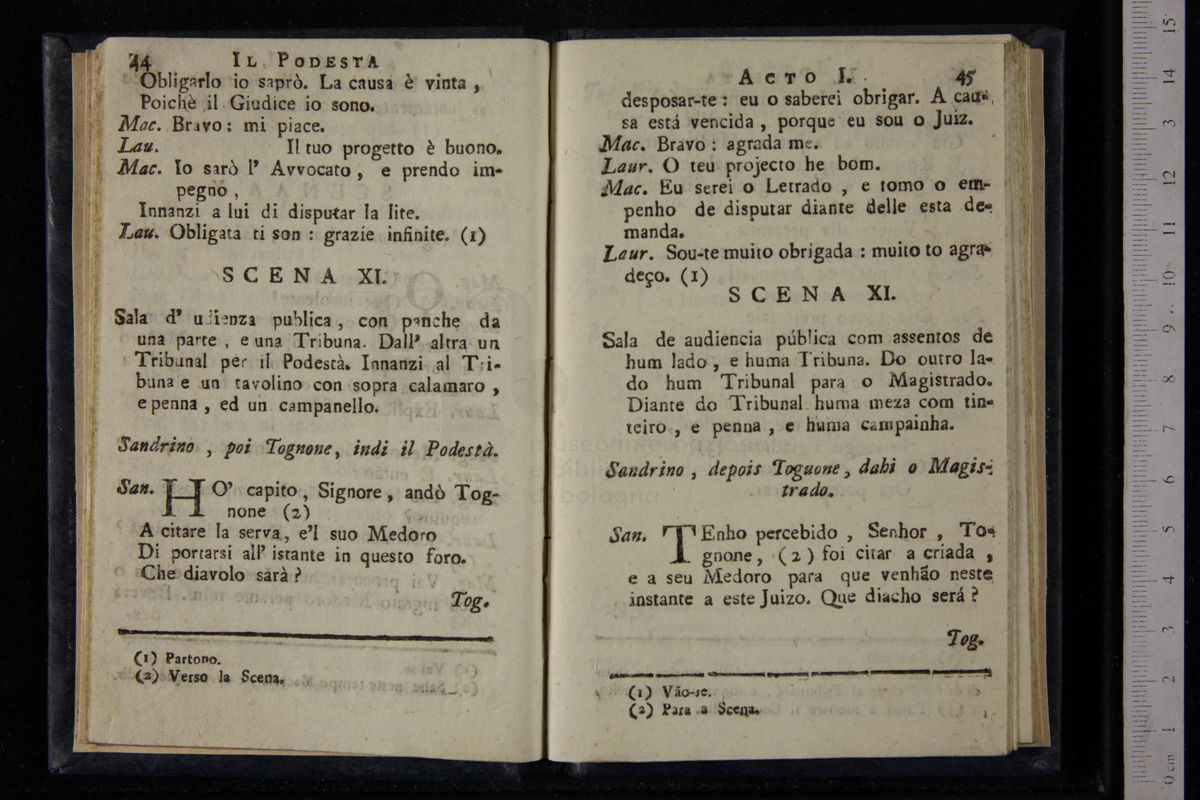 44 IL PODESTA
Obligarlo io saprò. La causa è vinta ,
Poichè il Giudice io sono.
Mac. Bravo : mi piace.
Lau. Il tuo progetto è buono.
Mac. Io sarò l' Avvocato , e prendo im-
pegno ,
Innanzi a lui di disputar la lite.
Lau. Obligata ti son : grazie infinite. (1)
SCENA XI.
Sala d' udienza publica , con panche da
una parte , e una Tribuna. Dall' altra un
Tribunal per il Podestà. Innanzi al Tri-
buna e un tavolino con sopra calamaro ,
e penna , ed un campanello.
Sandrino , poi Tognone, indi il Podestà.
San. HO' capito , Signore , andò Tog-
none (2)
A citare la serva, e'l suo Medoro
Di portarsi all' istante in questo foro.
Che diavolo sarà ?
Tog.
(1) Partono.
(2) Verso la Scena.
ACTO I. 45
desposar-te : eu o saberei obrigar. A cau-
sa está vencida , porque eu sou o Juiz.
Mac. Bravo : agrada me.
Laur. O teu projecto he bom.
Mac. Eu serei o Letrado , e tomo o em-
penho de disputar diante delle esta de-
manda.
Laur. Sou-te muito obrigada : muito to agra-
deço. (1)
SCENA XI.
Sala de audiencia pública com assentos de
hum lado , e huma Tribuna. Do outro la-
do hum Tribunal para o Magistrado.
Diante do Tribunal huma meza com tin-
teiro , e penna , e huma campainha.
Sandrino , depois Toguone , dahi o Magis-
trado.
San. TEnho percebido , Senhor , To-
gnone , (2) foi citar a criada ,
e a seu Medoro para que venhão neste
instante a este Juizo. Que diacho será ?
Tog.
(1) Vão-se.
(2) Para a Scena.